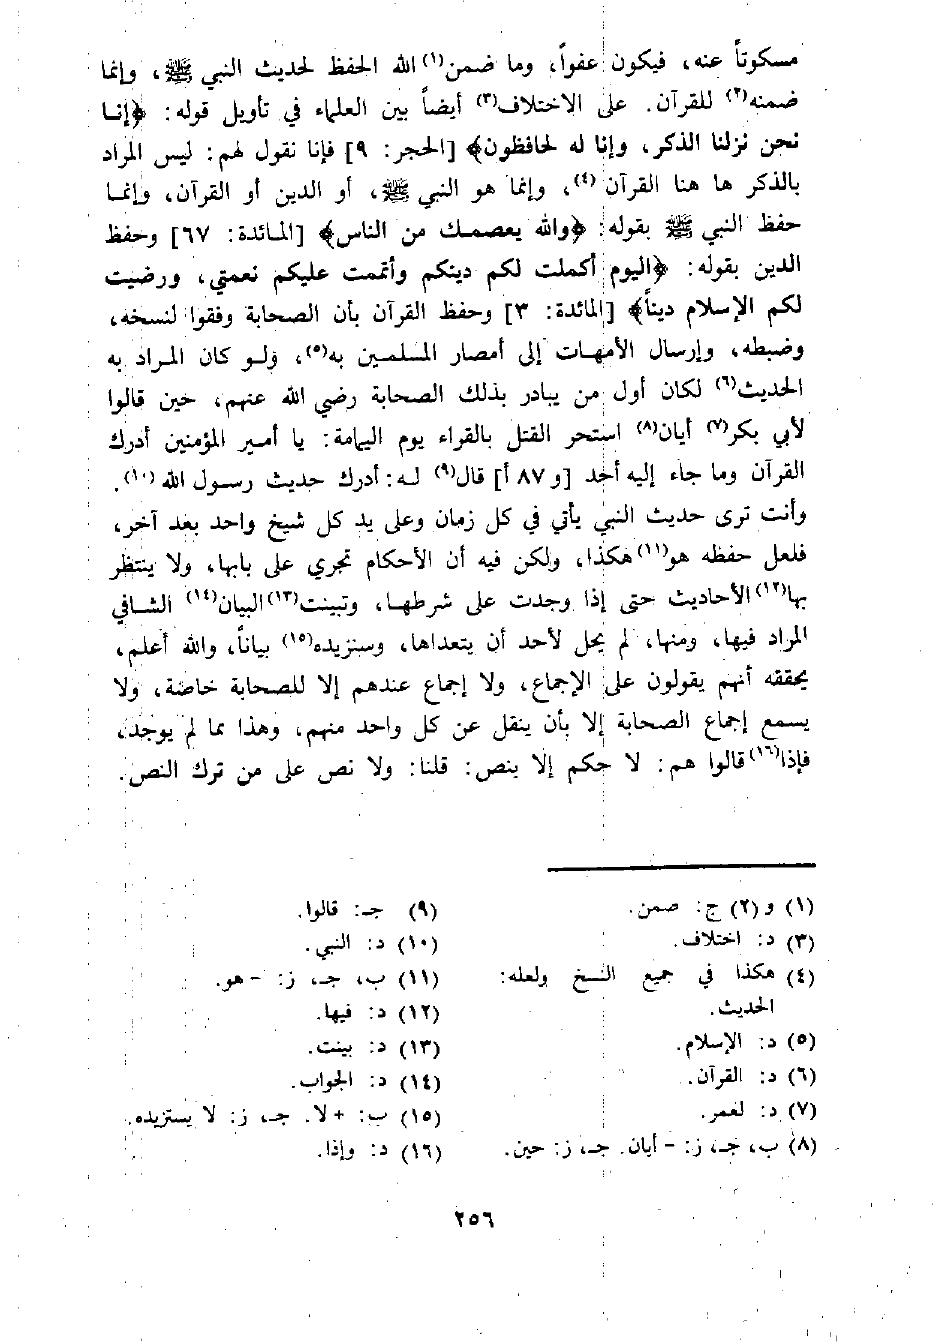 مسكوتاً عنه، فيكون عفواً، وما ضمن(١) الله الحفظ لحديث النبي ﷺ، وإنما
ضمنه(٢) للقرآن. على الاختلاف(٣) أيضاً بين العلماء في تأويل قوله: ﴿إنا
نحن نزلنا الذكر، وإنا له لحافظون﴾ [الحجر: ٩] فإنا نقول لهم: ليس المراد
بالذكر ها هنا القرآن(٤)، وإنما هو النبي ﷺ، أو الدين أو القرآن، وإنما
حفظ النبي ﷺ بقوله: ﴿والله يعصمك من الناس﴾ [المائدة: ٦٧] وحفظ
الدين بقوله: ﴿اليوم أكملت لكم دينكم وأتممت عليكم نعمتي، ورضيت
لكم الإسلام ديناً﴾ [المائدة: ٣] وحفظ القرآن بأن الصحابة وفقوا لنسخه،
وضبطه، وإرسال الأمهات إلى أمصار المسلمين به(٥)، ولو كان المراد به
الحديث(٦) لكان أول من يبادر بذلك الصحابة رضي الله عنهم، حين قالوا
لأبي بكر(٧) أيان(٨) استحر القتل بالقراء يوم اليمامة: يا أمير المؤمنين أدرك
القرآن وما جاء إليه أحد [و ٨٧ أ] قال(٩) له: أدرك حديث رسول الله (١٠).
وأنت ترى حديث النبي يأتي في كل زمان وعلى يد كل شيخ واحد بعد آخر،
فلعل حفظه هو(١١) هكذا، ولكن فيه أن الأحكام تجري على بابها، ولا ينتظر
بها(١٢) الأحاديث حتى إذا وجدت على شرطها، وتبينت(١٣) البيان(١٤) الشافي
المراد فيها، ومنها، لم يحل لأحد أن يتعداها، وسنزيده(١٥) بياناً، والله أعلم،
يحققه أنهم يقولون على الإجماع، ولا إجماع عندهم إلا للصحابة خاصة، ولا
يسمع إجماع الصحابة إلا بأن ينقل عن كل واحد منهم، وهذا مما لم يوجد،
فإذا(١٦) قالوا هم: لا حكم إلا بنص: قلنا: ولا نص على من ترك النص.
(١) و(٢) ج: صمن.
(٣) د: اختلاف.
(٤) هكذا في جميع النسخ ولعله:
الحديث.
(٥) د: الإسلام.
(٦) د: القرآن.
(٧) د: لعمر.
(٨) ب، جـ، ز: – أيان. جـ، ز: حين.
(٩) جـ: قالوا.
(١٠) د: النبي.
(١١) ب، جـ، ز: – هو.
(١٢) د: فيها.
(١٣) د: بينت.
(١٤) د: الجواب.
(١٥) ب: + لا. جـ، ز: لا يستزيده.
(١٦) د: وإذا.
٢٥٦